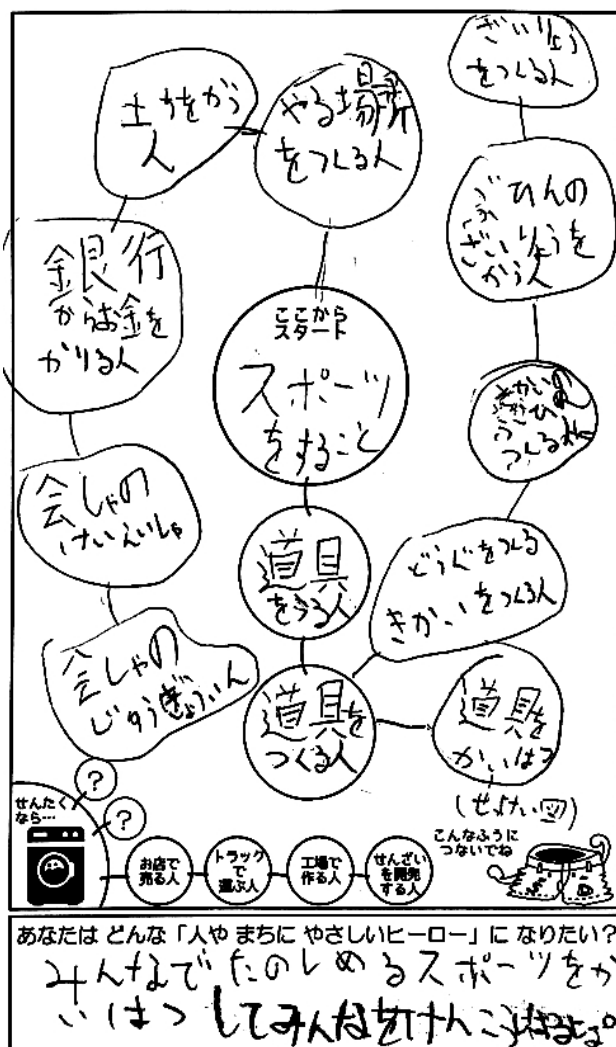 ざいりょう
をつくる人
土ちをかう
人
やる場所
をつくる人
ぶひんの
ざいりょうを
かう人
銀行
からお金を
かりる人
ここから
スタート
スポーツ
をすること
きかいの
ぶひん
つくる人
会しゃの
けいえいしゃ
道具
をうる人
どうぐをつくる
きかいをつくる人
会しゃの
じゅうぎょういん
道具を
つくる人
道具を
かいはつ
(せっけい図)
せんたく
なら…
?
?
お店で
売る人
トラック
で
運ぶ人
工場で
作る人
せんざい
を開発
する人
こんなふうに
つないでね
あなたは どんな「人や まちに やさしいヒーロー」に なりたい?
みんなでたのしめるスポーツをか
いはつしてみんなをけんこう